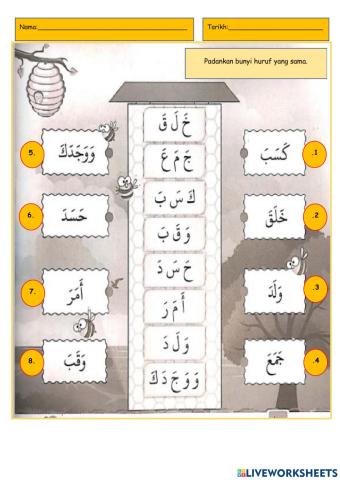 Nama:
Tarikh:
Padankan bunyi huruf yang sama.
خَ لَ قَ
جَ مَ عَ
كَ سَ بَ
وَ قَ بَ
حَ سَ دَ
أَ مَ رَ
وَ لَ دَ
وَ وَ جَ دَ كَ
.1 كَسَبَ
.2 خَلَقَ
.3 وَلَدَ
.4 جَمَعَ
5. وَوَجَدَكَ
6. حَسَدَ
7. أَمَرَ
8. وَقَبَ
LIVEWORKSHEETS